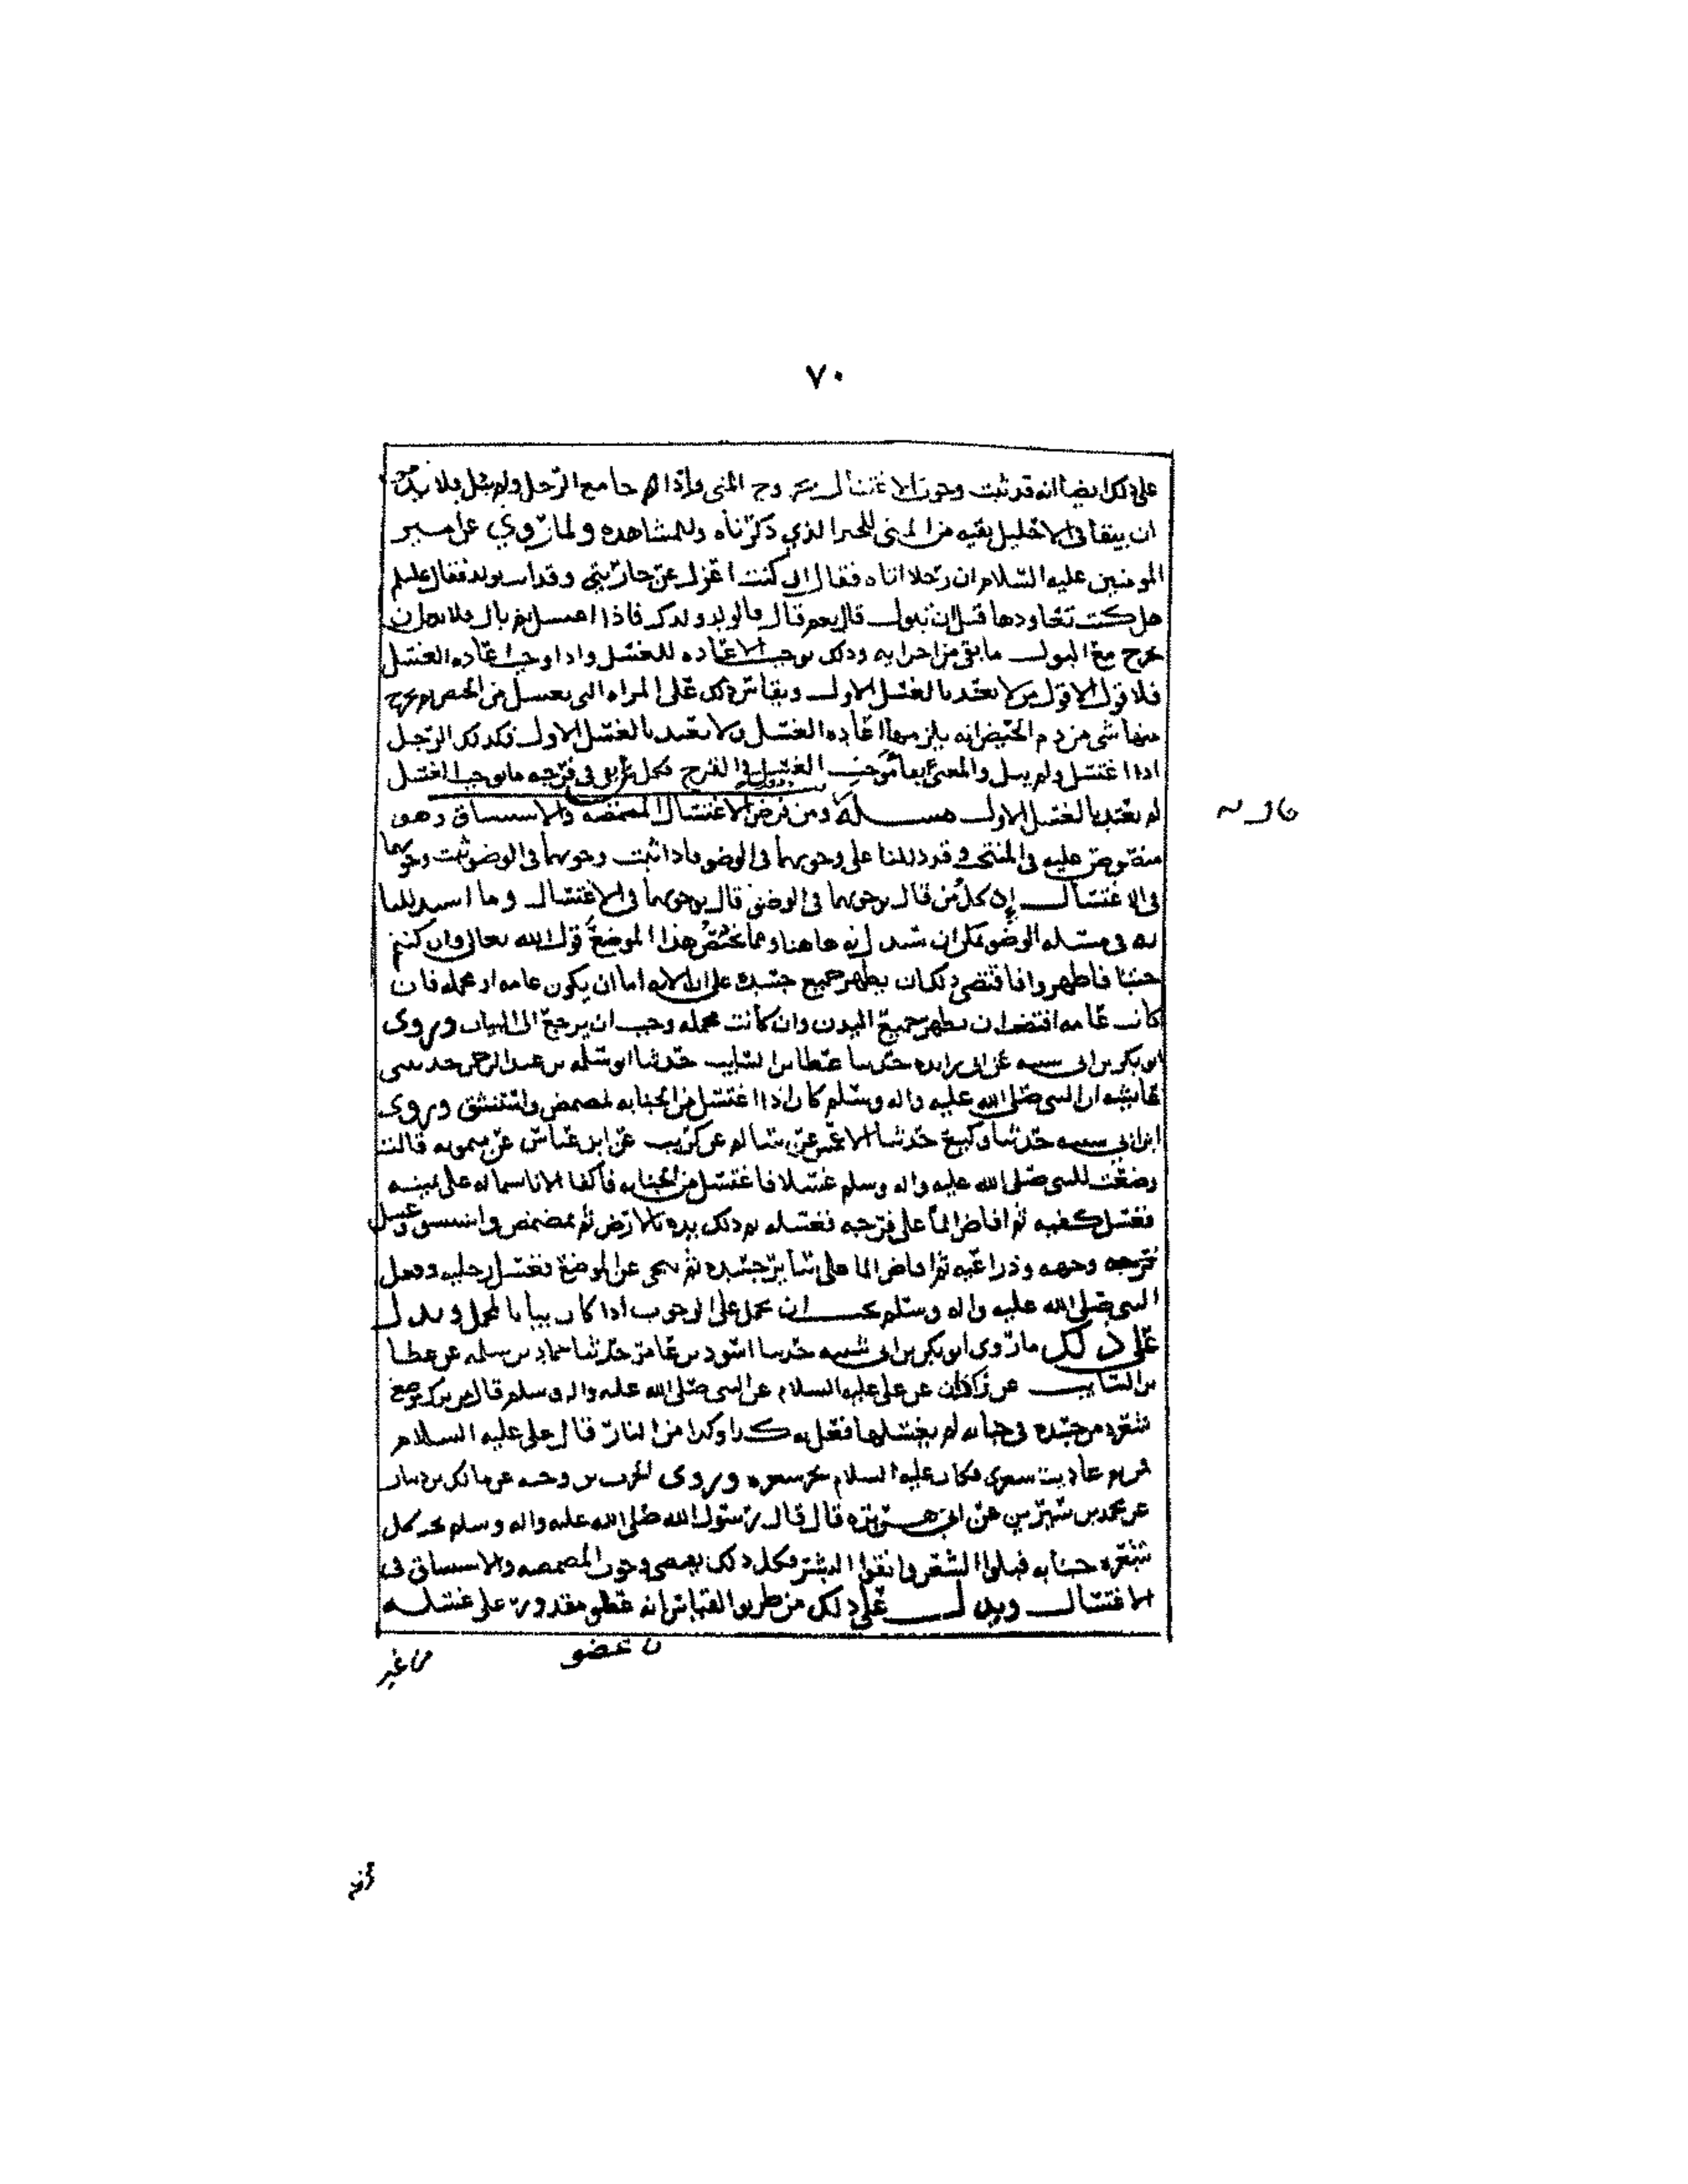 ٧٠
على ذلك ايضا انه قد ثبت وجوب الاغتسال بخروج المني واذا جامع الرجل ولم يبل فلا بد من
ان يبقا في الاحليل بقيه من المني للخبر الذي ذكرناه وللمشاهده ولما روي عن امير
المومنين عليه السلام ان رجلا اتاه فقال اني كنت اعزل عن جاريتي وقد اتت بولد فقال عليلم
هل كنت تعاودها قبل ان تبول قال نعم قال فالولد ولدك فاذا اغتسل ثم بال فلا بد ان
يخرج مع البول ما بقي من اجزايه وذلك يوجب الاعاده للغسل واذا وجب اعاده الغسل
فلا قول الا قول من لا يعتد بالغسل الاول ويقاس ذلك على المراه التي تغسل من الحيض ثم يخرج
منها شي من دم الحيض انه يلزمها اعاده الغسل ولا تعتد بالغسل الاول فكذلك الرجل
اذا اغتسل ولم يبل والمعنى بقا موجب الغسل في الفرج فكل من بقي في فرجه ما يوجب الغسل
لم يعتد بالغسل الاول مسـله ومن فرض الاغتسال المضمضه والاستنشاق وهو
منصوص عليه في المنتخب وقد دللنا على وجوبهما في الوضو فاذا ثبت وجوبهما في الوضو ثبت وجوبهما
في الاغتسال إذ كل من قال بوجوبهما في الوضو قال بوجوبهما في الاغتسال وما استدللنا
به في مسله الوضو يمكن ان يستدل به هاهنا ومما يختص هذا الموضع قول الله تعالى وان كنتم
جنبا فاطهروا فاقتضى ذلك ان يطهر جميع جسده على ان الايه اما ان يكون عامه او مجمله فان
كانت عامه اقتضت ان يطهر جميع البدن وان كانت مجمله وجب ان يرجع الى البيان وروى
ابو بكر بن ابي شيبه عن ابن زايده حدثنا عطا بن السايب حدثنا ابو سلمه بن عبد الرحمن حدثتني
عايشه ان النبي صلى الله عليه واله وسلم كان اذا اغتسل من الجنابه تمضمض واستنشق وروى
ابن ابي شيبه حدثنا وكيع حدثنا الاعمش عن سالم عن كريب عن ابن عباس عن ميمونه قالت
وضعت للنبي صلى الله عليه واله وسلم غسلا فاغتسل من الجنابه فأكفا الانا بشماله على يمينه
فغسل كفيه ثم افاض الماء على فرجه فغسله ثم دلك يده بالارض ثم تمضمض واستنشق وغسل
وجهه وذراعيه ثم افاض الما على ساير جسده ثم تنحى عن الموضع فغسل رجليه وفعل
النبي صلى الله عليه واله وسلم يجب ان يحمل على الوجوب اذا كان بيانا لمجمل ويدل
على ذلك ما روى ابو بكر بن ابي شيبه حدثنا اسود بن عامر حدثنا حماد بن سلمه عن عطا
بن السايب عن زاذان عن علي عليه السلام عن النبي صلى الله عليه واله وسلم قال من ترك موضع
شعره من جسده في جنابه لم يغسلها فعل به كذا وكذا من النار قال علي عليه السلام
فمن ثم عاديت شعري فكان عليه السلام يجز شعره وروى الحرث بن وجيه عن مالك بن دينار
عن محمد بن سيرين عن ابي هريره قال قال رسول الله صلى الله عليه واله وسلم تحت كل
شعره جنابه فبلوا الشعر وانقوا البشر فكل ذلك يقتضي وجوب المضمضه والاستنشاق في
الاغتسال ويدل على ذلك من طريق القياس انه عضو مقدور على غسله
عضو
من غير